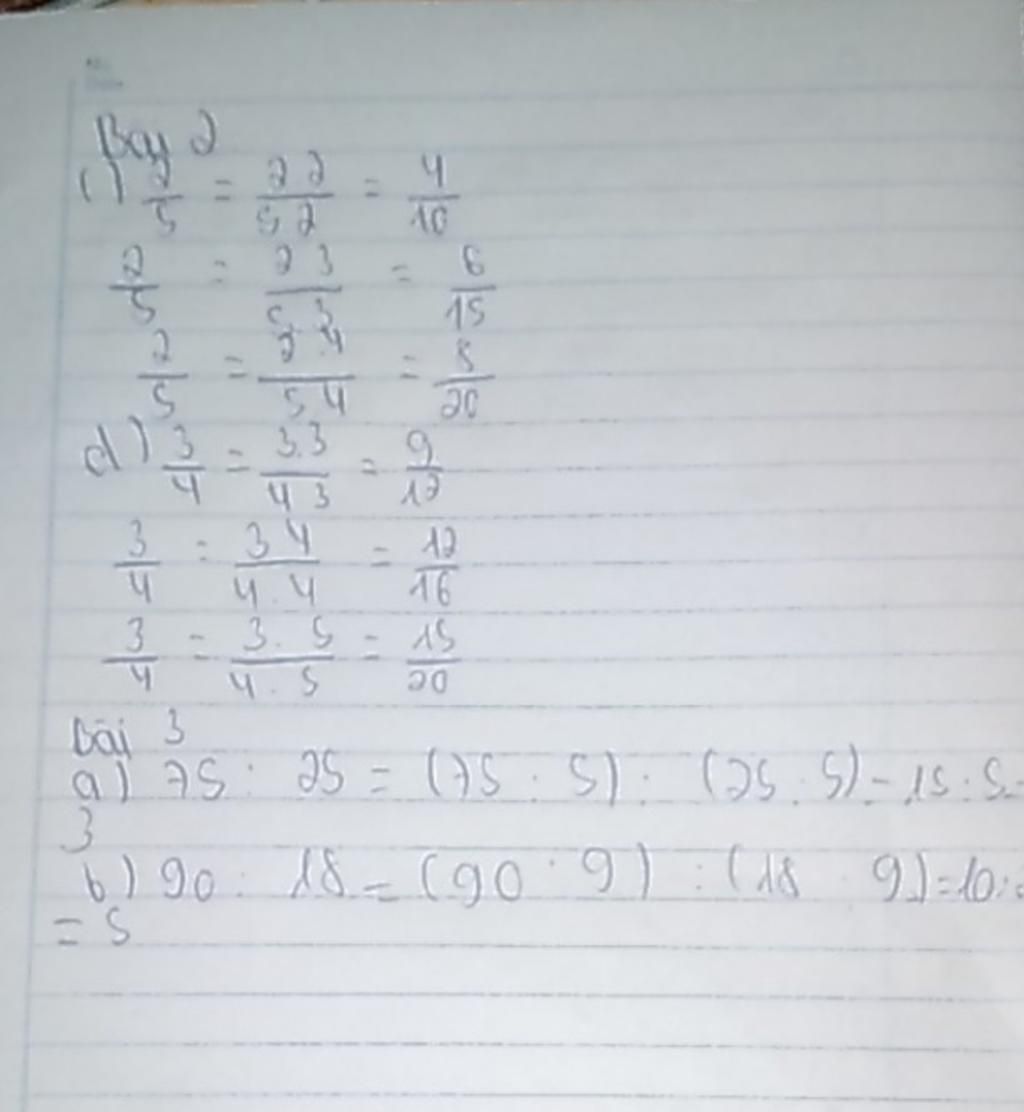 Bài 2
c) 2/5 = 2 2/5 2 = 4/10
2/5 = 2 3/5 3 = 6/15
2/5 = 2.4/5 4 = 8/20
d) 3/4 = 3.3/4 3 = 9/12
3/4 = 3 4/4.4 = 12/16
3/4 = 3.5/4.5 = 15/20
bài 3
a) 75 : 25 = (75 : 5) : (25 : 5) = 15 : 5 =
3
b) 90 : 18 = (90 : 9) : (18 9) = 10 :
= 5